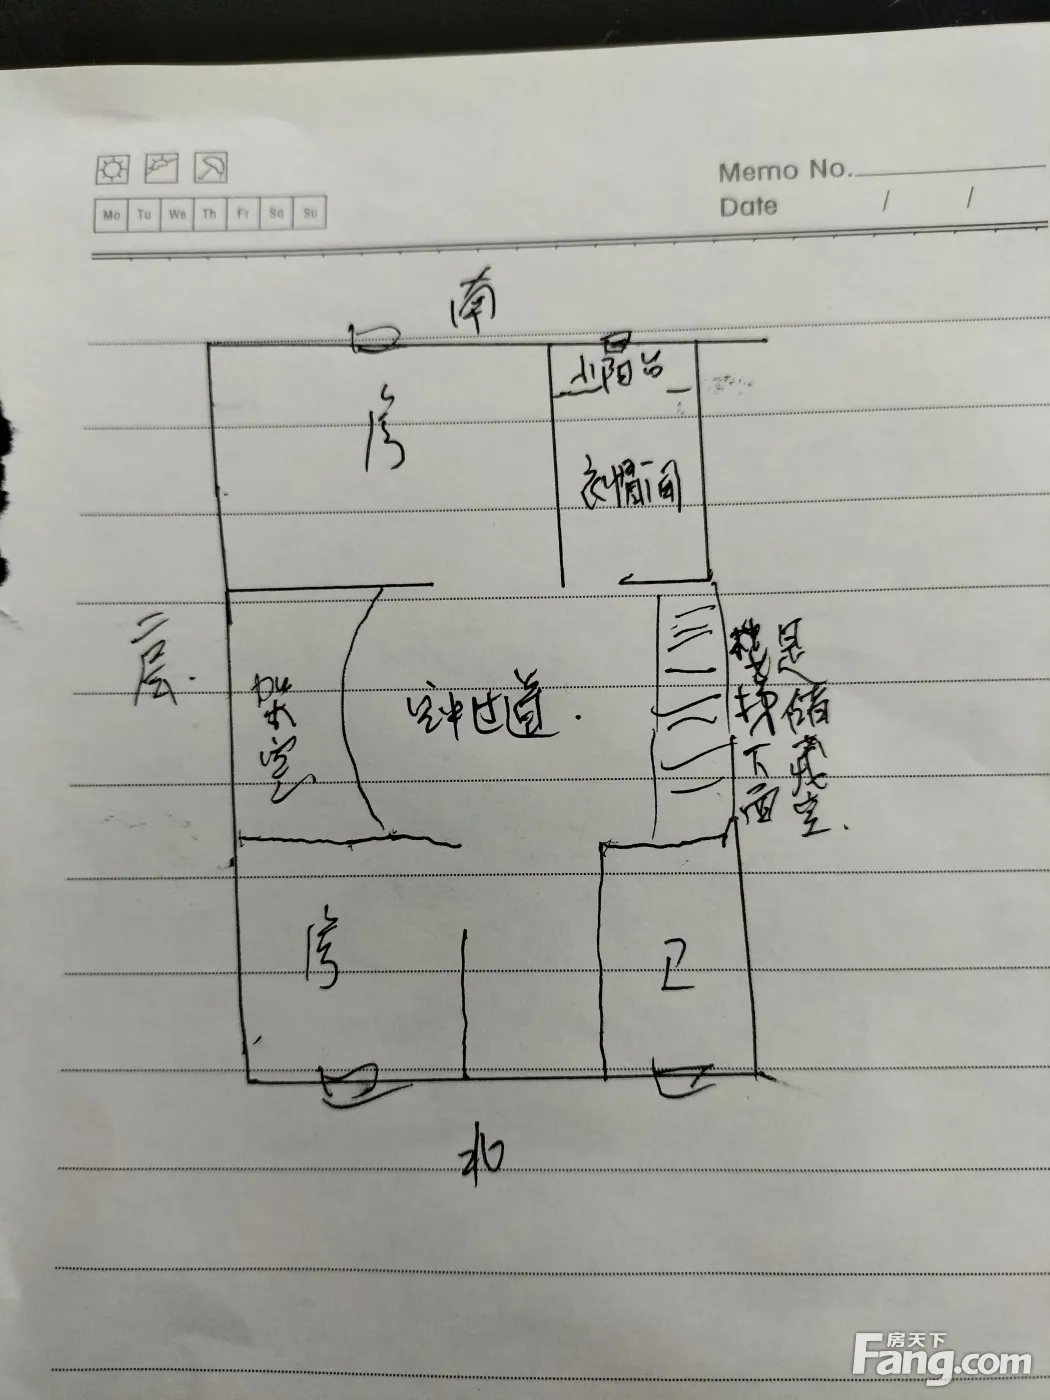 Memo No.
Mo Tu We Th Fr Sa Su
Date / /
南
小阳台
房
衣帽间
二层.
架空
空中过道.
楼梯下面
是储藏室.
房
卫
北
房天下
Fang.com